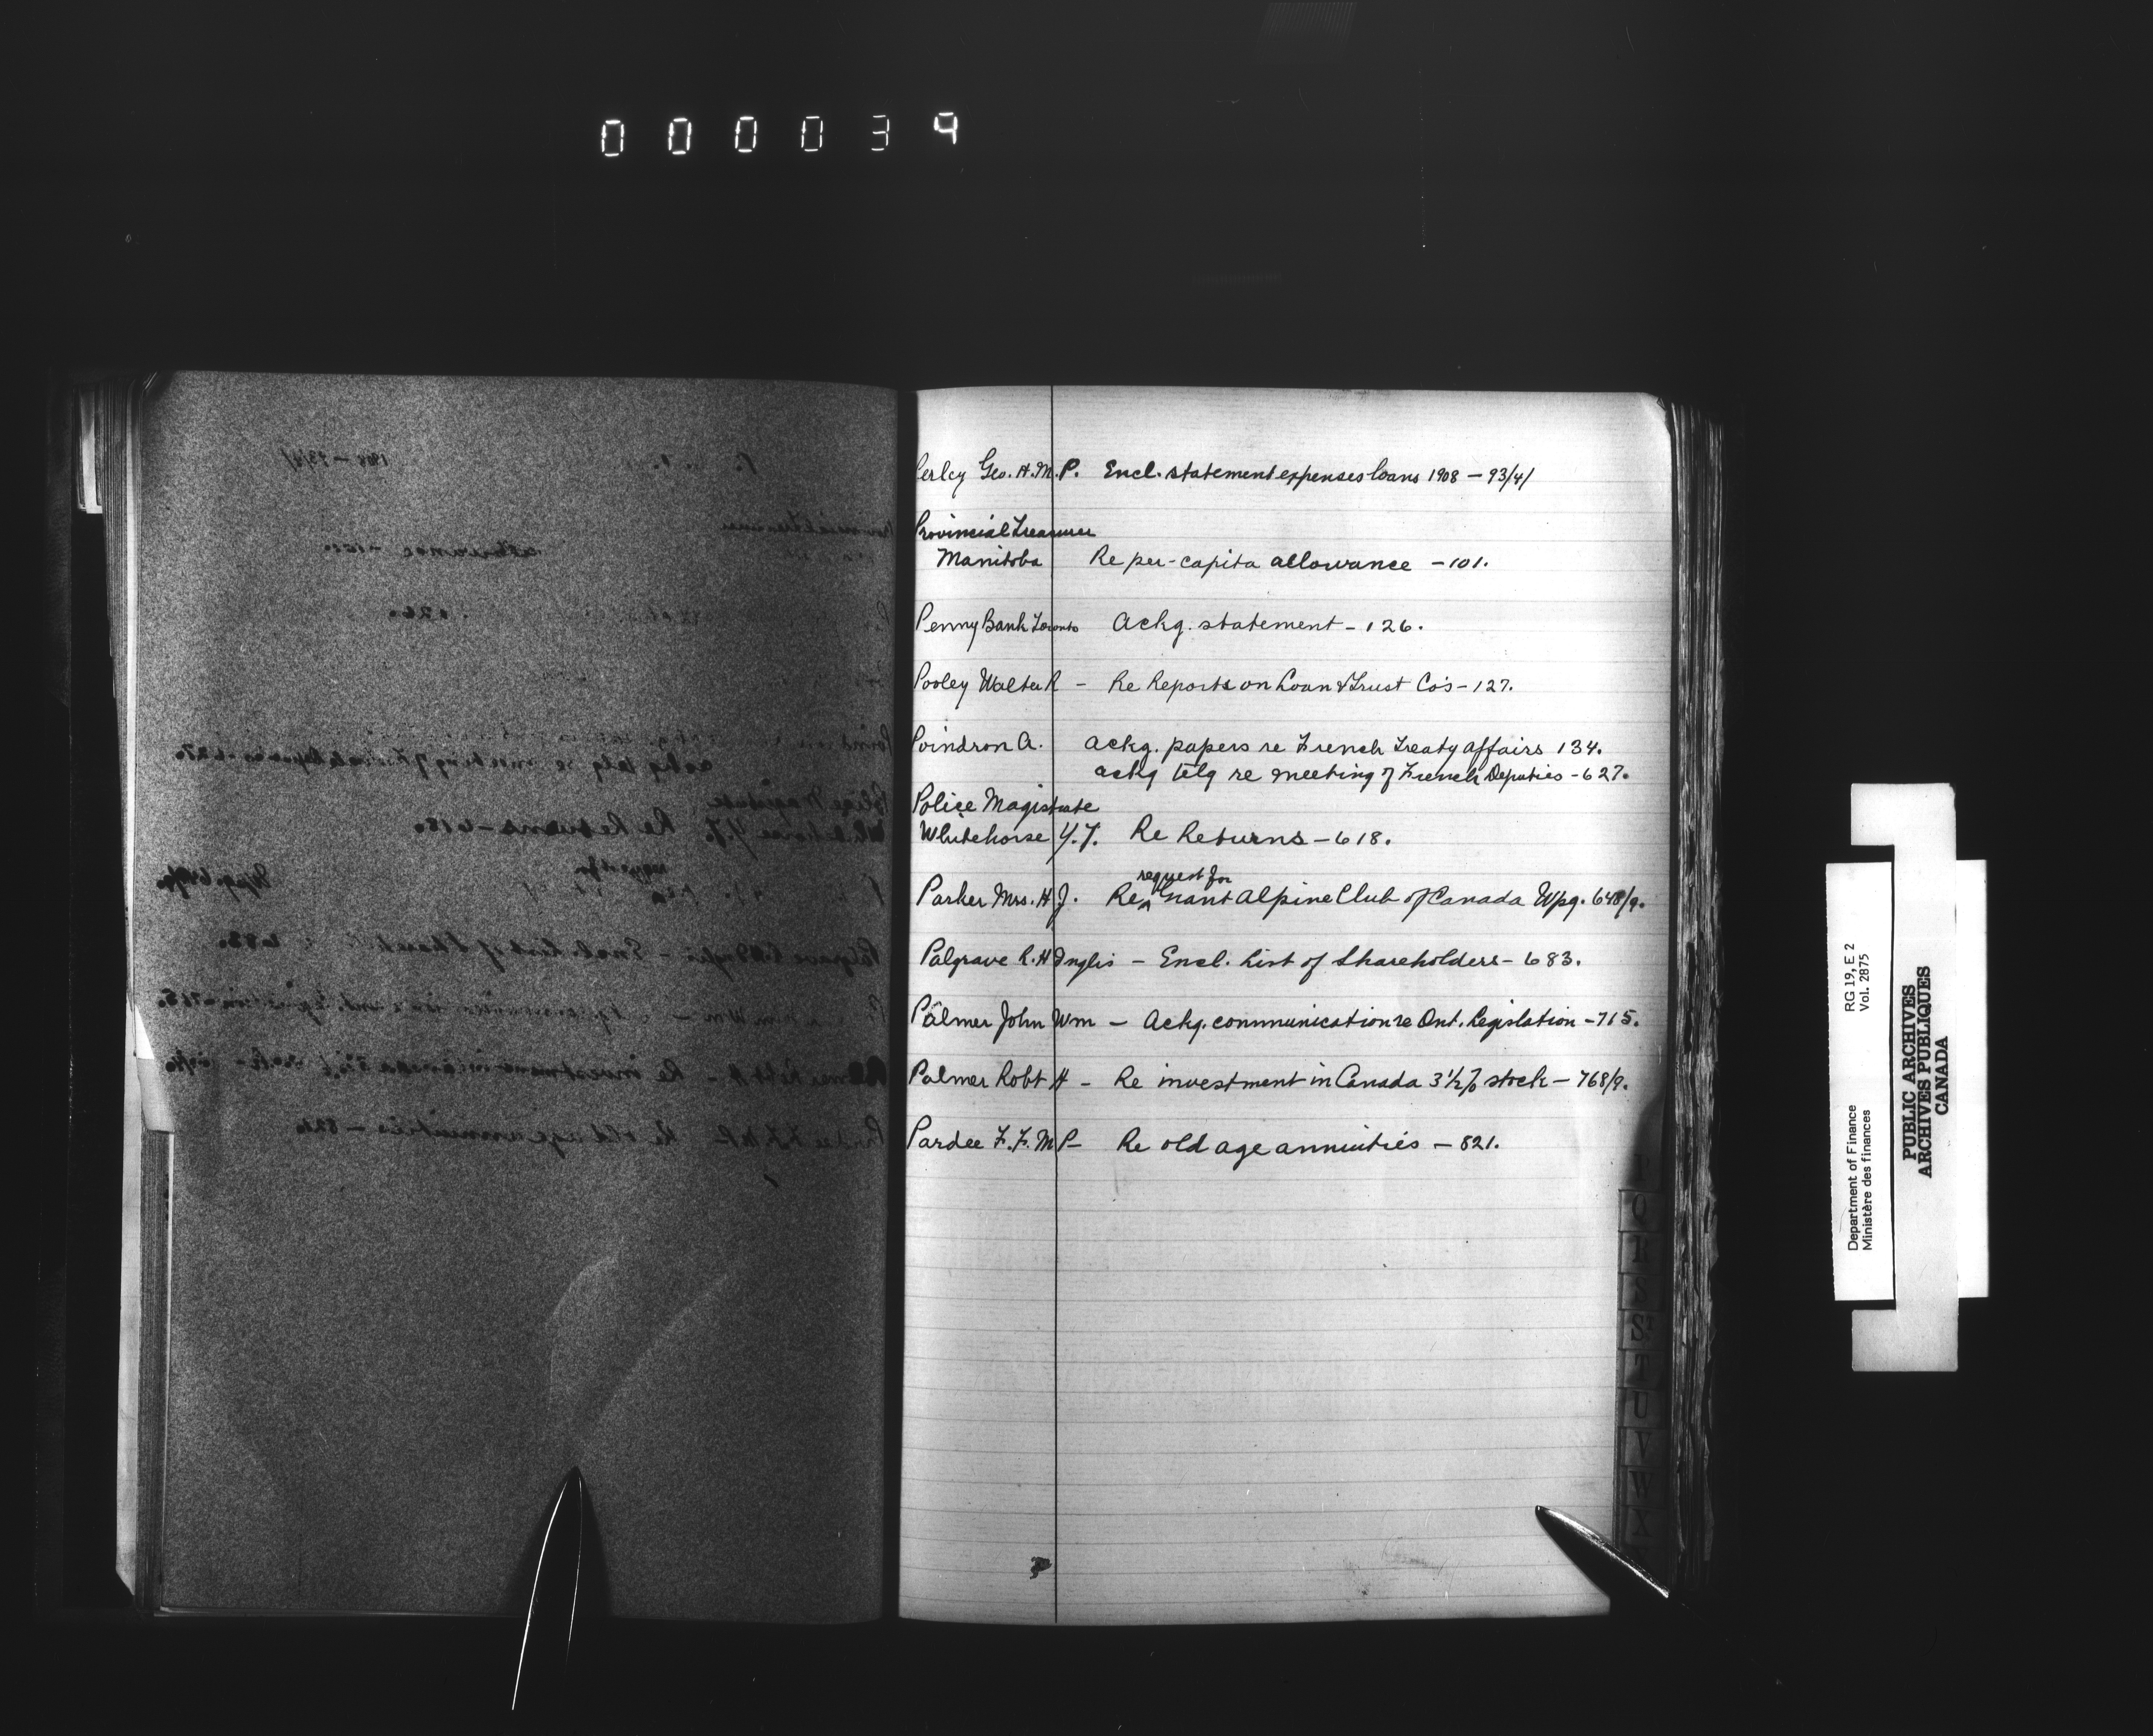 000039
Perley Geo. H. M.P. Encl. statement expenses loans 1908 - 93/4/
Provincial Treasurer
Manitoba Re per-capita allowance - 101.
Penny Bank Toronto Ackg. statement - 126.
Pooley Walter R - Re Reports on Loan & Trust Co's - 127.
Poindron A. Ackg. papers re French Treaty affairs 134.
ackg telg re meeting of French Deputies - 627.
Police Magistrate
Whitehorse Y.T. Re Returns - 618.
request for
Parker Mrs. H.J. Re ^ Grant Alpine Club of Canada Wpg. 648/9.
Palgrave R.H Inglis - Encl. List of Shareholders - 683.
Palmer John Wm - Ackg. communication re Ont. Legislation - 715.
Palmer Robt H - Re investment in Canada 3 1/2% stock - 768/9.
Pardee F.F. M P - Re old age annuities - 821.
R
S
T
U
V
W
X
Department of Finance RG 19, E 2
Ministère des finances Vol. 2875
PUBLIC ARCHIVES
ARCHIVES PUBLIQUES
CANADA